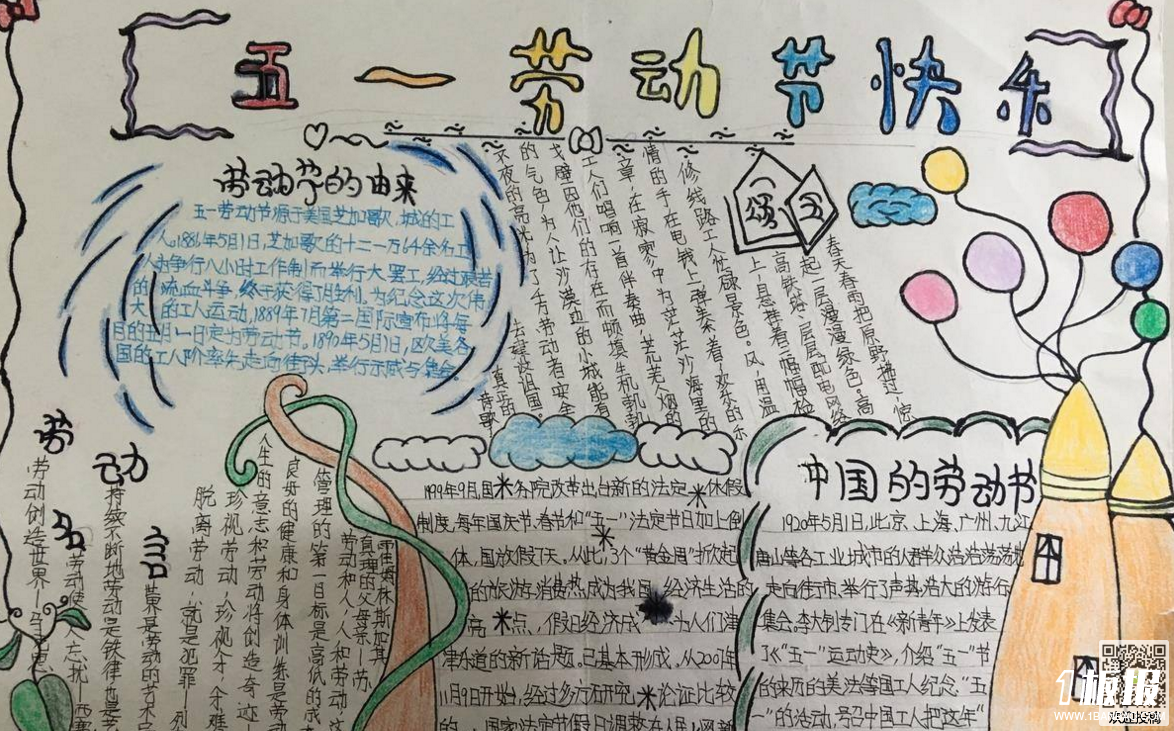 五一劳动节快乐
劳动节的由来
五一劳动节源于美国芝加哥城的工
人。1886年5月1日,芝加哥的十二一万64余名工
人为争行八小时工作制而举行大罢工,经过艰苦
的流血斗争,终于获得了胜利。为纪念这次伟
大的工人运动,1889年7月第二国际宣布将每
年的五月一日定为劳动节。1890年5月1日,欧美各
国的工人阶率先走向街头,举行示威与集会。
颂五一
春天春雨把原野拖过,惊
起一层漫漫绿色。高
高铁塔,层层配电网络
上,自悬挂着一幅幅检
修线路工人忙碌景色。风,用温
情的手,在电钱上弹奏着欢乐的乐
章,在寂寥中为茫茫沙海里的
工人们唱响一首伴奏曲,荒芜人烟的
戈壁因他们的存在而顿填生机勃勃
的气色,为人让沙漠边的小城能有
不夜的亮光为了千万劳动者安全
去建设祖国
劳动名言
劳动创造世界
劳动使人忘忧
持续不断地劳动是铁律也是
脱离劳动,就是犯罪
珍视劳动,珍视人才
人生的意志和劳动将创造奇迹
良好的健康和身体训练是劳动
管理的第一目标是高低的成
劳动和人,人和劳动,这
真理的父母亲
1999年9月国务院改革出台新的法定休假
制度,每年国庆节、春节和“五一”法定节日加上倒
休,国放假7天。从此,3个“黄金周”掀起
的旅游消费热成为我国经济生活的
亮点,假日经济成为人们津
津乐道的新话题。已基本形成,从200
11月9日开始,经过多方研究论证比较
的,国家法定节假日调整在人民网新
中国的劳动节
1920年5月1日,北京、上海、广州、九江
唐山等各工业城市的人群众浩浩荡荡地
走向街市、举行了声势浩大的游行
集会。李大钊专门在《新青年》上发表
了《“五一”运动史》,介绍“五一”节
的来历的美法等国工人纪念“五
一”的活动,号召中国工人把这年“
1板报
WWW.1BANBAO.COM
欢迎投稿